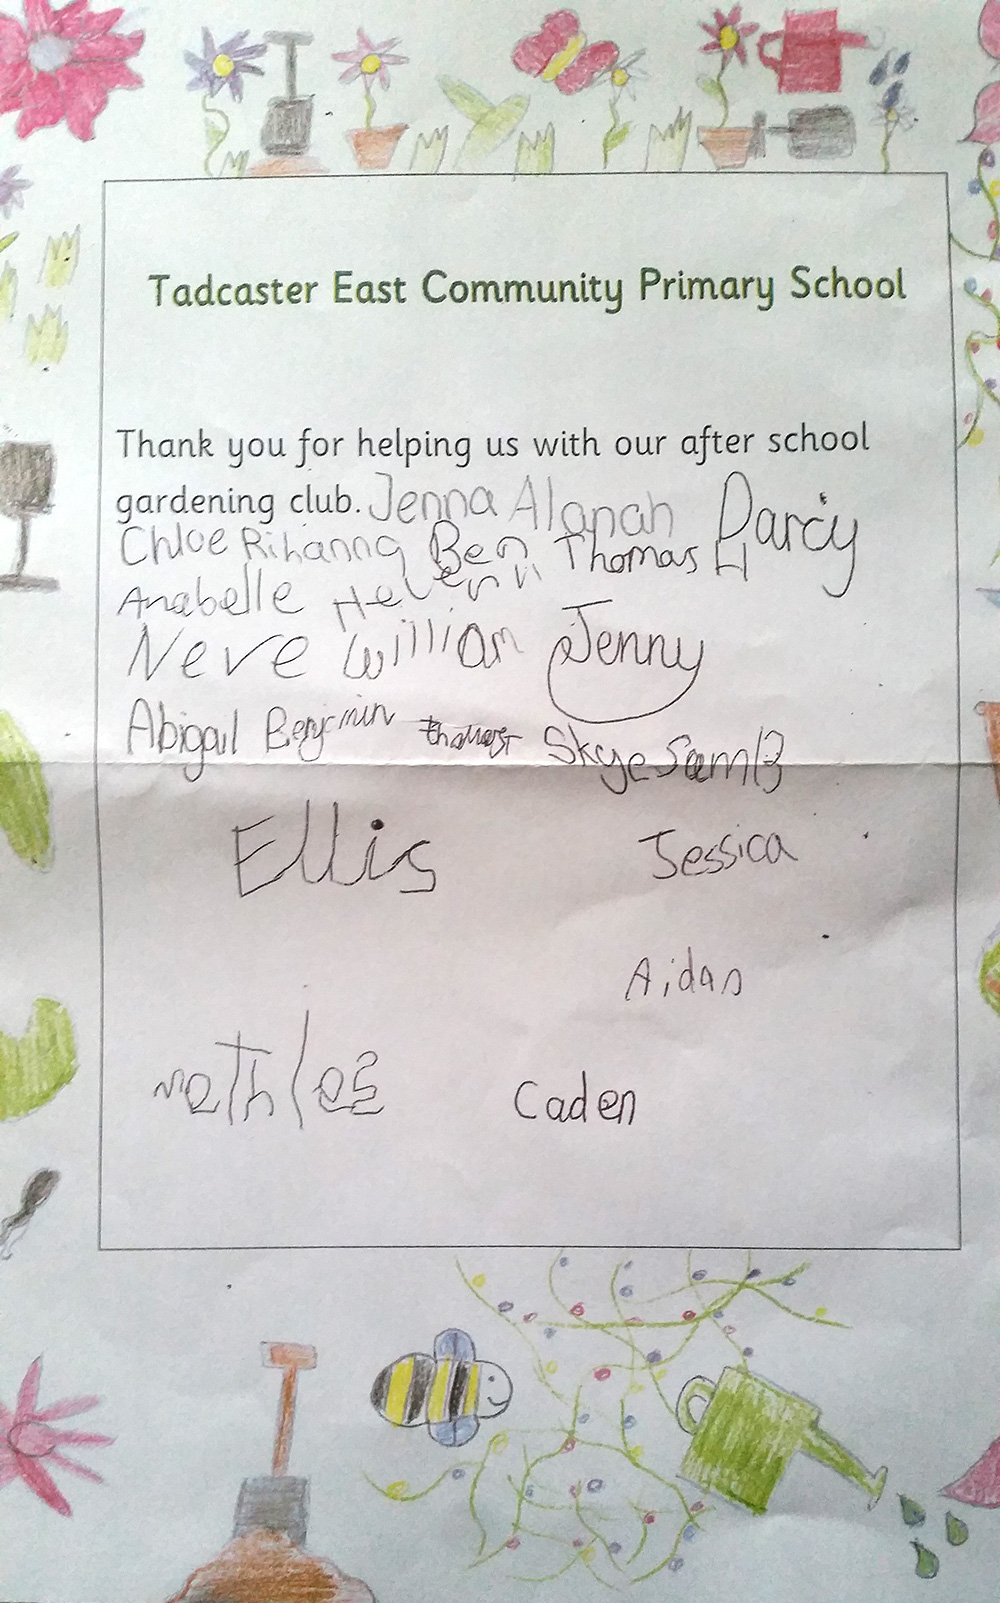 Tadcaster East Community Primary School
Thank you for helping us with our after school
gardening club. Jenna Alanah Darcy
Chloe Rihanna Ben Thomas H
Anabelle
Neve William Jenny
Abigail Benjmin Skye Sam B
Ellis Jessica
Aidan
Caden